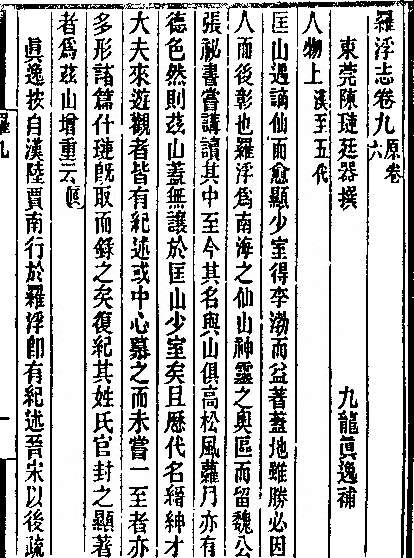 羅浮志卷九原卷六
東莞陳璉廷器撰　九龍眞逸補
人物上漢至五代
匡山遇謫仙而愈顯少室得李渤而益著蓋地雖勝必因
人而後彰也羅浮爲南海之仙山神靈之奧區而留魏公
張祕書嘗講讀其中至今其名與山俱高松風蘿月亦有
德色然則茲山蓋無讓於匡山少室矣且歷代名縉紳才
大夫來遊觀者皆有紀述或中心慕之而未嘗一至者亦
多形諸篇什璉旣取而錄之矣復紀其姓氏官封之顯著
者爲茲山增重云
眞逸按自漢陸賈南行於羅浮卽有紀述晉宋以後疏